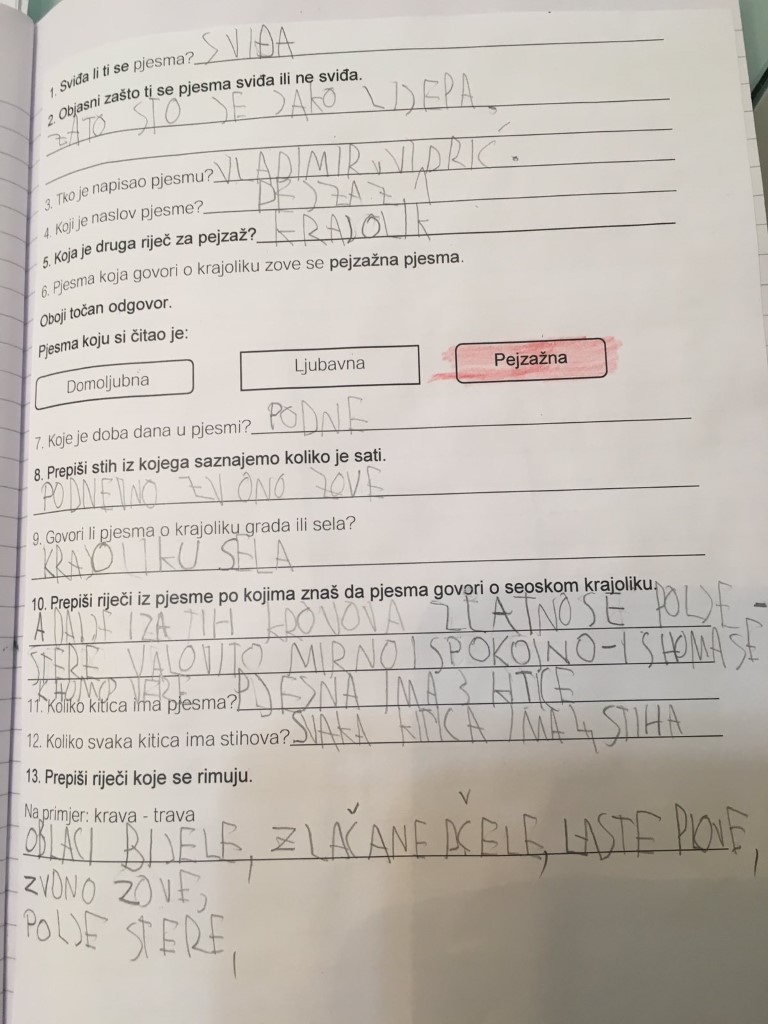 1. Sviđa li ti se pjesma? SVIĐA
2. Objasni zašto ti se pjesma sviđa ili ne sviđa.
ZATO STO JE JAKO LJEPA.
3. Tko je napisao pjesmu? VLADIMIR VIDRIĆ.
4. Koji je naslov pjesme?
5. Koja je druga riječ za pejzaž? KRAJOLIK
6. Pjesma koja govori o krajoliku zove se pejzažna pjesma.
Oboji točan odgovor.
Pjesma koju si čitao je:
Domoljubna Ljubavna Pejzažna
7. Koje je doba dana u pjesmi? PODNE
8. Prepiši stih iz kojega saznajemo koliko je sati.
PODNEVNO ZVONO ZOVE
9. Govori li pjesma o krajoliku grada ili sela?
KRAJOLIKU SELA
10. Prepiši riječi iz pjesme po kojima znaš da pjesma govori o seoskom krajoliku.
A DALJE IZA TIH KROVOVA ZLATNO SE POLJE-
STERE VALOVITO MIRNO I SPOKOJNO-I S HOMA SE
11. Koliko kitica ima pjesma? PJESNA IMA 3 KITICE
12. Koliko svaka kitica ima stihova? SVAKA KITICA IMA 4 STIHA
13. Prepiši riječi koje se rimuju.
Na primjer: krava - trava
OBLACI BIJELE, ZLAČANE PČELE, LASTE PLOVE,
ZVONO ZOVE,
POLJE STERE,